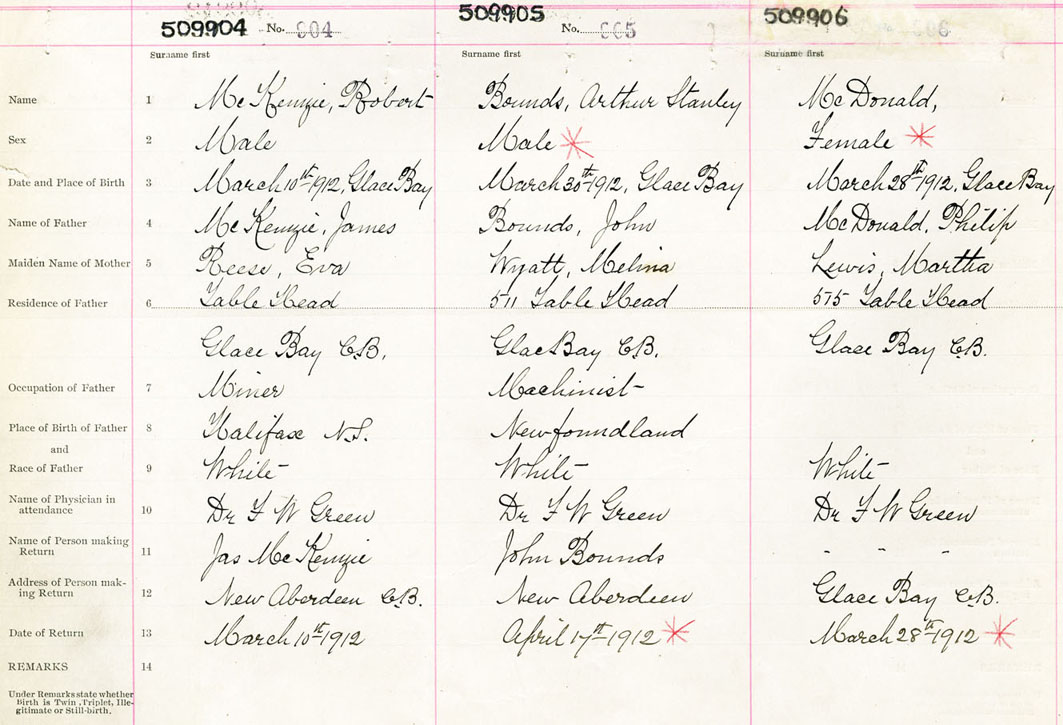 509904 No. 904 509905 No. 905 509906
Surname first Surname first Surname first
Name 1 McKenzie, Robert Bounds, Arthur Stanley McDonald,
Sex 2 Male Male * Female *
Date and Place of Birth 3 March 10th 1912, Glace Bay March 30th 1912, Glace Bay March 28th 1912, Glace Bay
Name of Father 4 McKenzie, James Bounds, John McDonald, Philip
Maiden Name of Mother 5 Reese, Eva Wyatt, Melina Lewis, Martha
Residence of Father 6 Table Head 511 Table Head 575 Table Head
Glace Bay C.B. Glac Bay C.B. Glace Bay C.B.
Occupation of Father 7 Miner Machinist
Place of Birth of Father 8 Halifax N.S. Newfoundland
and
Race of Father 9 White White White
Name of Physician in
attendance 10 Dr F W Green Dr F W Green Dr F W Green
Name of Person making
Return 11 Jas McKenzie John Bounds " " "
Address of Person mak-
ing Return 12 New Aberdeen C.B. New Aberdeen Glace Bay C.B.
Date of Return 13 March 10th 1912 April 17th 1912 * March 28th 1912 *
REMARKS 14
Under Remarks state whether
Birth is Twin, Triplet, Ille-
gitimate or Still-birth.